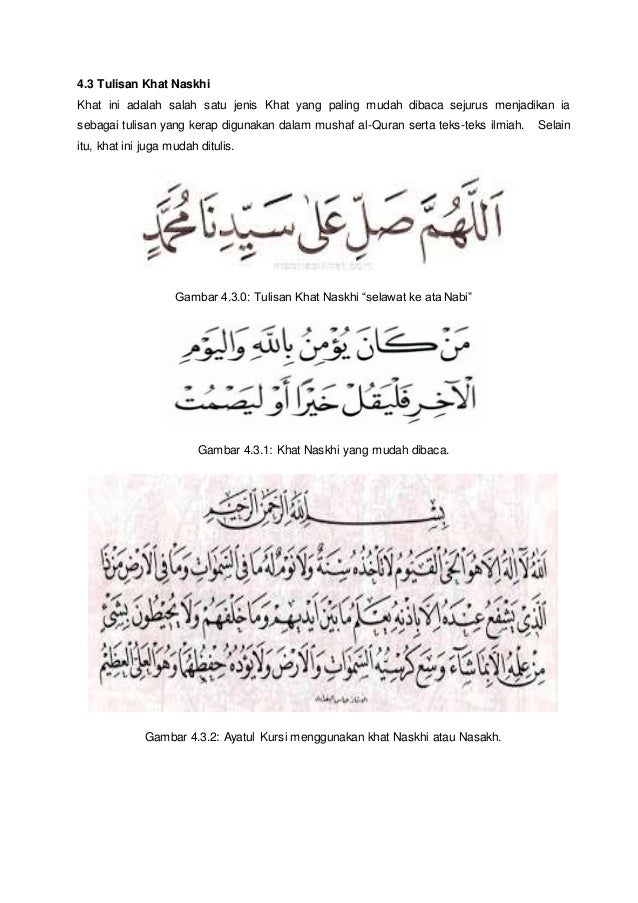 4.3 Tulisan Khat Naskhi
Khat ini adalah salah satu jenis Khat yang paling mudah dibaca sejurus menjadikan ia
sebagai tulisan yang kerap digunakan dalam mushaf al-Quran serta teks-teks ilmiah. Selain
itu, khat ini juga mudah ditulis.
اَللّٰهُمَّ صَلِّ عَلَىٰ سَيِّدِنَا مُحَمَّدٍ
Gambar 4.3.0: Tulisan Khat Naskhi “selawat ke ata Nabi”
مَنْ كَانَ يُؤْمِنُ بِاللَّهِ وَالْيَوْمِ
الْآخِرِ فَلْيَقُلْ خَيْرًا أَوْ لِيَصْمُتْ
Gambar 4.3.1: Khat Naskhi yang mudah dibaca.
بِسْمِ اللهِ الرَّحْمٰنِ الرَّحِيمِ
اللهُ لَا إِلٰهَ إِلَّا هُوَ الْحَيُّ الْقَيُّومُ لَا تَأْخُذُهُ سِنَةٌ وَلَا نَوْمٌ لَهُ مَا فِي السَّمٰوَاتِ وَمَا فِي الْأَرْضِ مَنْ ذَا
الَّذِي يَشْفَعُ عِنْدَهُ إِلَّا بِإِذْنِهِ يَعْلَمُ مَا بَيْنَ أَيْدِيهِمْ وَمَا خَلْفَهُمْ وَلَا يُحِيطُونَ بِشَيْءٍ
مِنْ عِلْمِهِ إِلَّا بِمَا شَاءَ وَسِعَ كُرْسِيُّهُ السَّمٰوَاتِ وَالْأَرْضَ وَلَا يَئُودُهُ حِفْظُهُمَا وَهُوَ الْعَلِيُّ الْعَظِيمُ
Gambar 4.3.2: Ayatul Kursi menggunakan khat Naskhi atau Nasakh.